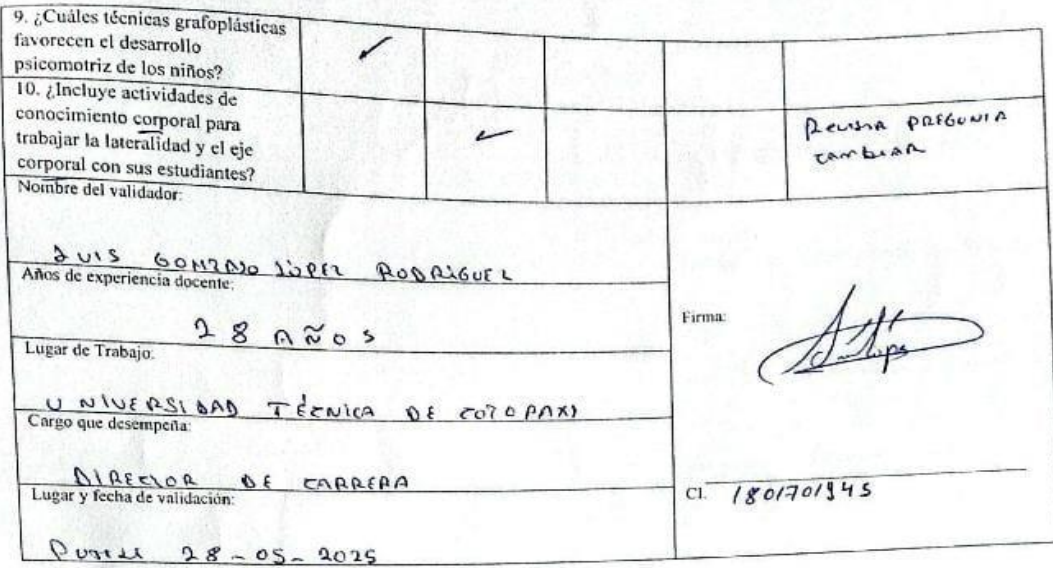 9. ¿Cuáles técnicas grafoplásticas
favorecen el desarrollo
psicomotriz de los niños?
10. ¿Incluye actividades de
conocimiento corporal para
trabajar la lateralidad y el eje
corporal con sus estudiantes?
REVISAR PREGUNTA
CAMBIAR
Nombre del validador:
LUIS GONZALO LÓPEZ RODRÍGUEZ
Años de experiencia docente:
28 AÑOS
Firma:
Lugar de Trabajo:
UNIVERSIDAD TÉCNICA DE COTOPAXI
Cargo que desempeña:
DIRECTOR DE CARRERA
CI. 1801701945
Lugar y fecha de validación:
28-05-2025